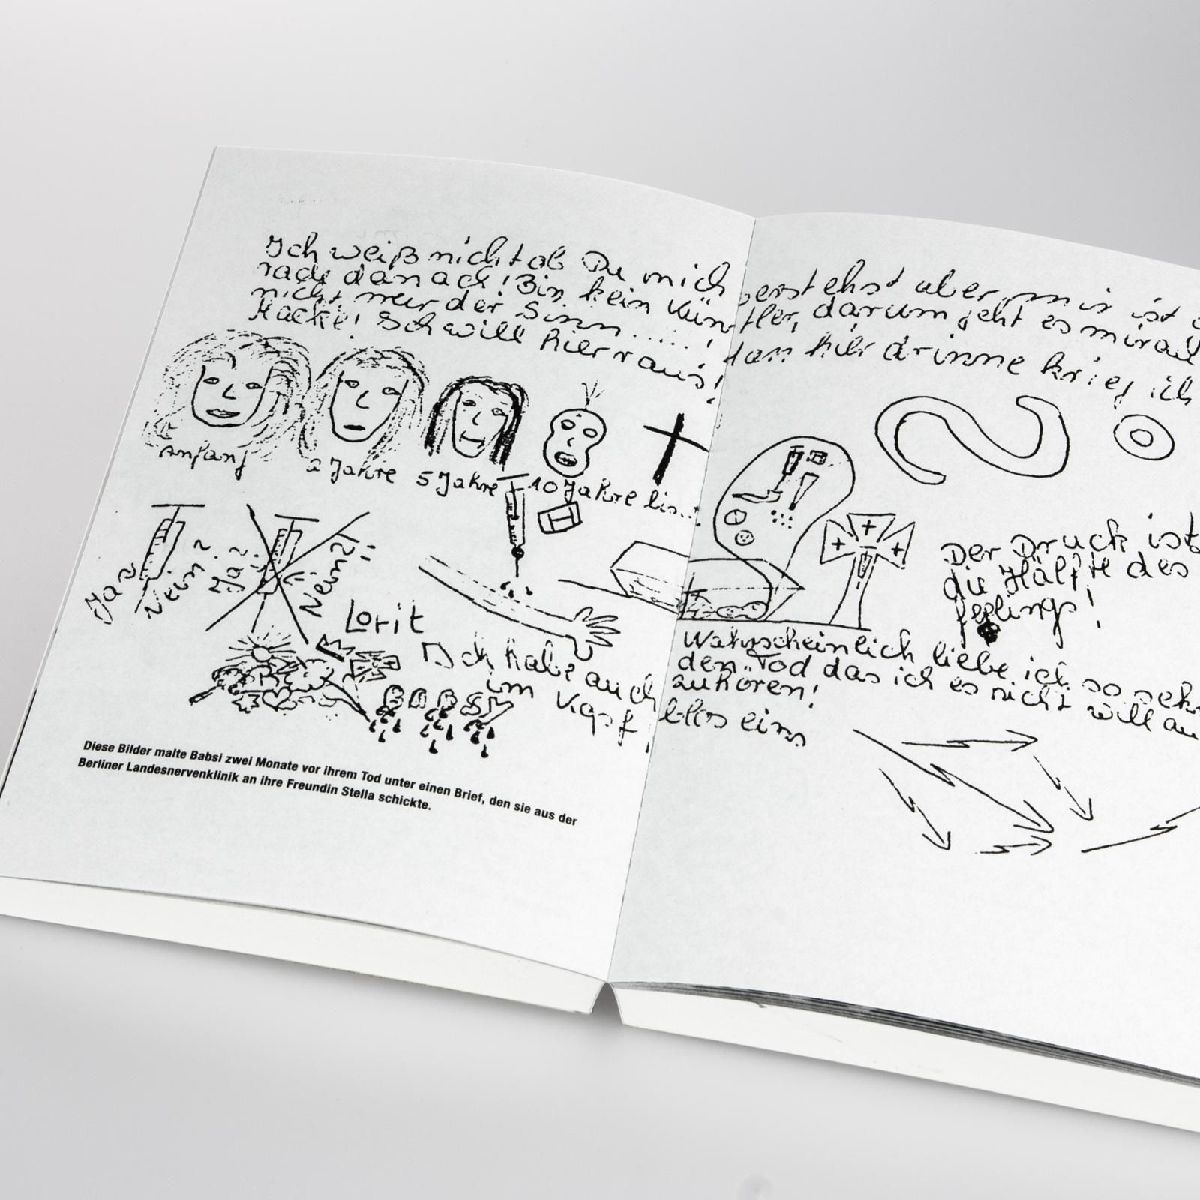 Ich weiß nicht ob Du mich verstehst aber mir ist
rade danach! Bin kein Künstler, darum geht es mir au
nicht, nur der Sinn......!
Kacke! Ich will hier raus! dan hier drinne krieg ich
Anfang 2 Jahre 5 Jahre 10 Jahre bis...
Ja? Nein? Ja? Nein?!
Der Druck ist
die Hälfte des
feelings!
Lorit
Ich habe auch
im Kopf,
BABSY
Wahrscheinlich liebe ich so seh
den Tod das ich es nicht will au
zuhören!
eins
Diese Bilder malte Babsi zwei Monate vor ihrem Tod unter einen Brief, den sie aus der
Berliner Landesnervenklinik an ihre Freundin Stella schickte.